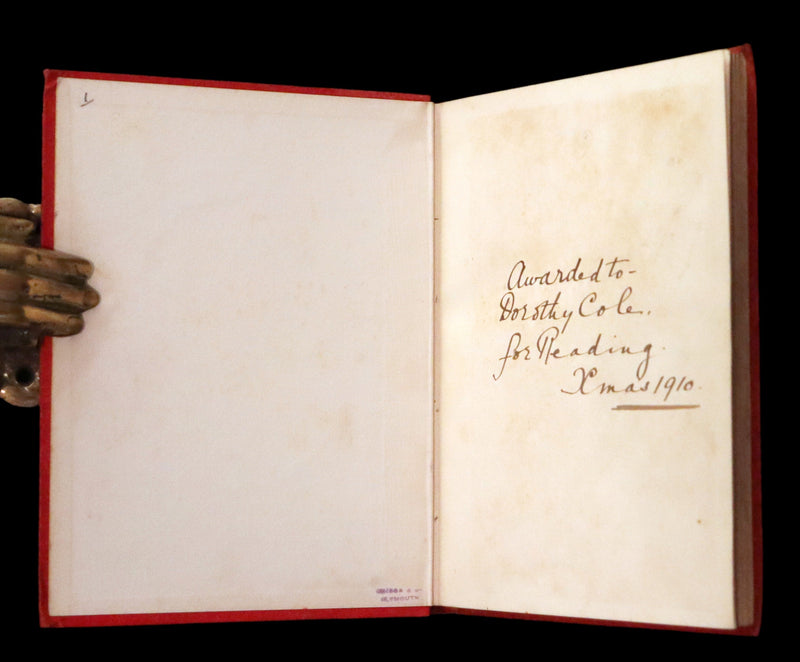 1
Awarded to-
Dorothy Cole.
for Reading.
Xmas 1910.
PLYMOUTH